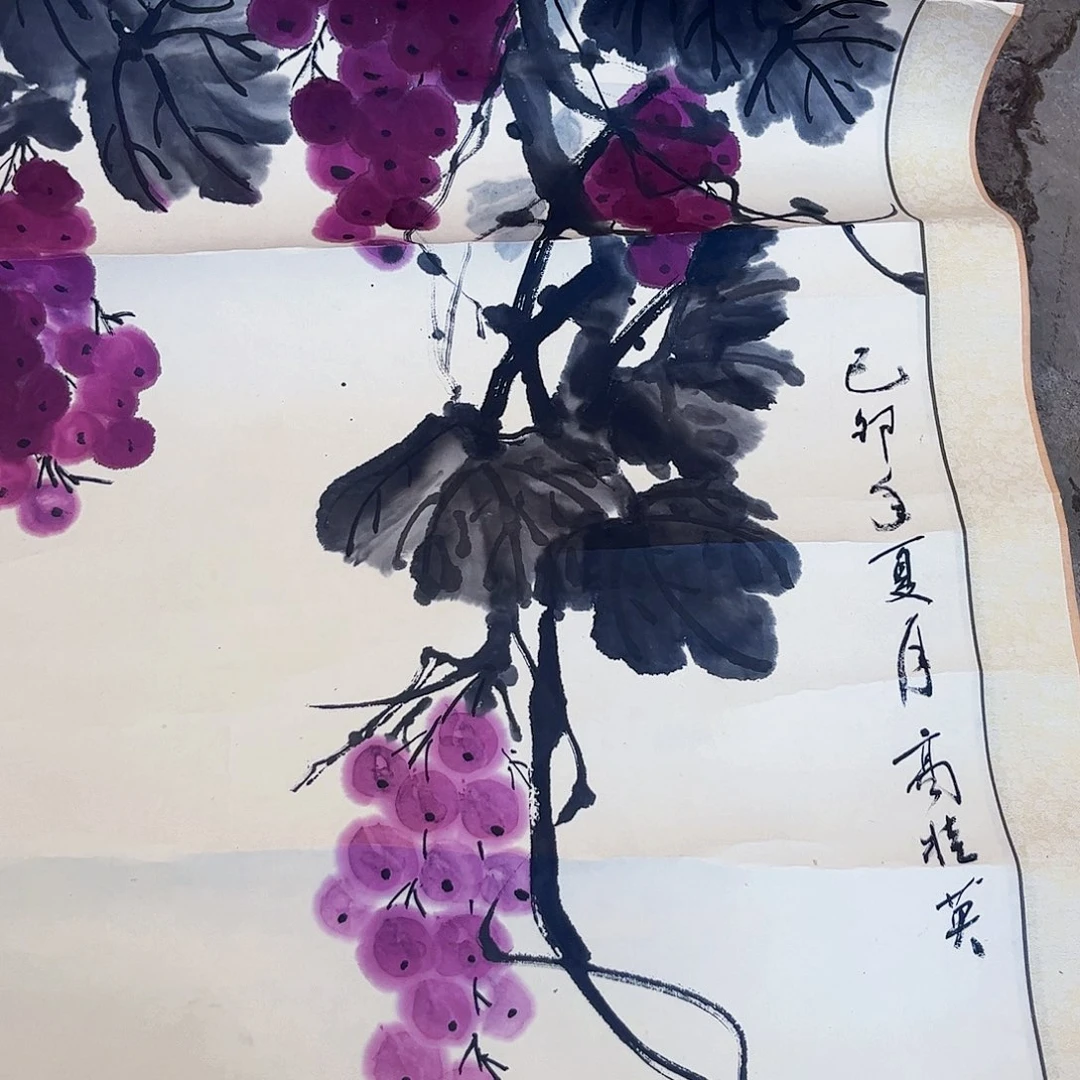 己卯年夏月高桂英